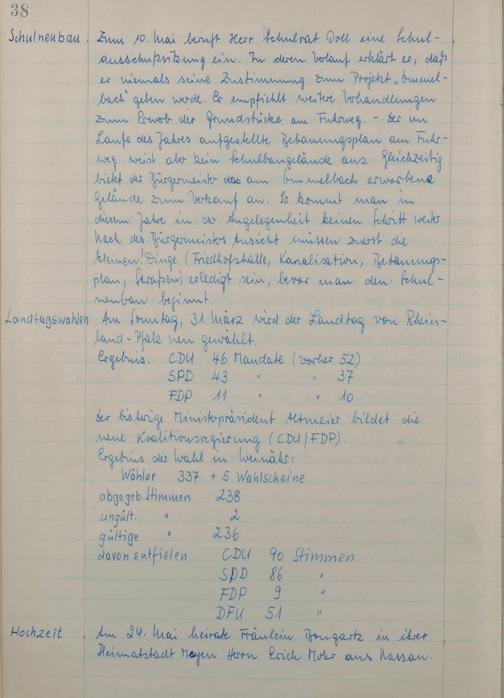 38
Schulneubau. Zum 10. Mai beruft Herr Schulrat Doll eine Schul-
ausschußsitzung ein. In deren Verlauf erklärt er, daß
er niemals seine Zustimmung zum Projekt „Gemmel-
bach" geben werde. Er empfiehlt weitere Verhandlungen
zum Erwerb der Grundstücke am Fuhrweg. - Der im
Laufe des Jahres aufgestellte Bebauungsplan am Fuhr-
weg weist aber kein Schulbaugelände aus. Gleichzeitig
bietet der Bürgermeister das am Gemmelbach erworbene
Gelände zum Verkauf an. So kommt man in
diesem Jahre in der Angelegenheit keinen Schritt weiter.
Nach des Bürgermeisters Ansicht müssen zuerst die
kleinen! Dinge (Friedhofshalle, Kanalisation, Bebauungs-
plan, Straßen) erledigt sein, bevor man den Schul-
neubau beginnt.
Landtagswahlen Am Sonntag, 31. März wird der Landtag von Rhein-
land-Pfalz neu gewählt.
Ergebnis: CDU 46 Mandate (vorher 52)
SPD 43 " " 37
FDP 11 " " 10
Der bisherige Ministerpräsident Altmeier bildet die
neue Koalitionsregierung (CDU/FDP).
Ergebnis der Wahl in Weinähr:
Wähler 337 + 5 Wahlscheine
abgegeb. Stimmen 238
ungült. " 2
gültige " 236
davon entfielen CDU 90 Stimmen
SPD 86 "
FDP 9 "
DFU 51 "
Hochzeit. Am 24. Mai heiratet Fräulein Bongartz in ihrer
Heimatstadt Mayen Herrn Erich Mohr aus Nassau.